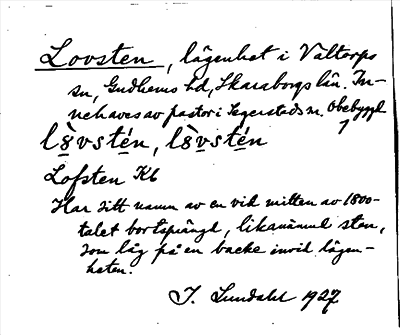 Lovsten, lägenhet i Valtorps
sn, Gudhems hd, Skaraborgs län. In-
nehaves av pastor i Segerstads sn. Obebyggd
lo̊vstén, lo̊vstén
Lofsten Kb
Har sitt namn av en vid mitten av 1800-
talet bortsprängd, likanämnd sten,
som låg på en backe invid lägen-
heten.
J. Lundahl 1927